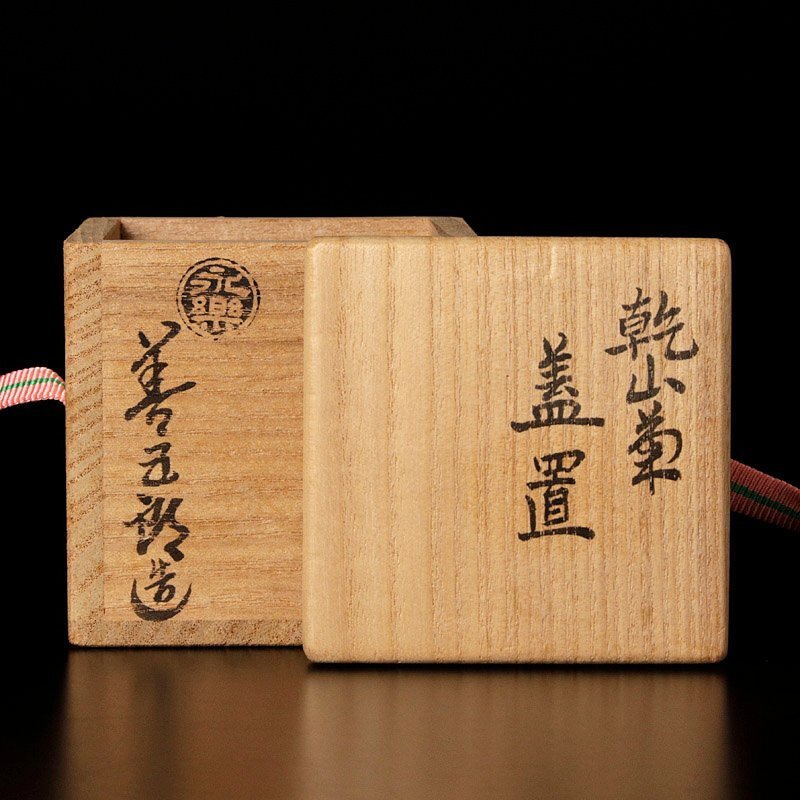 乾山菊
蓋置
永樂
善五郎造